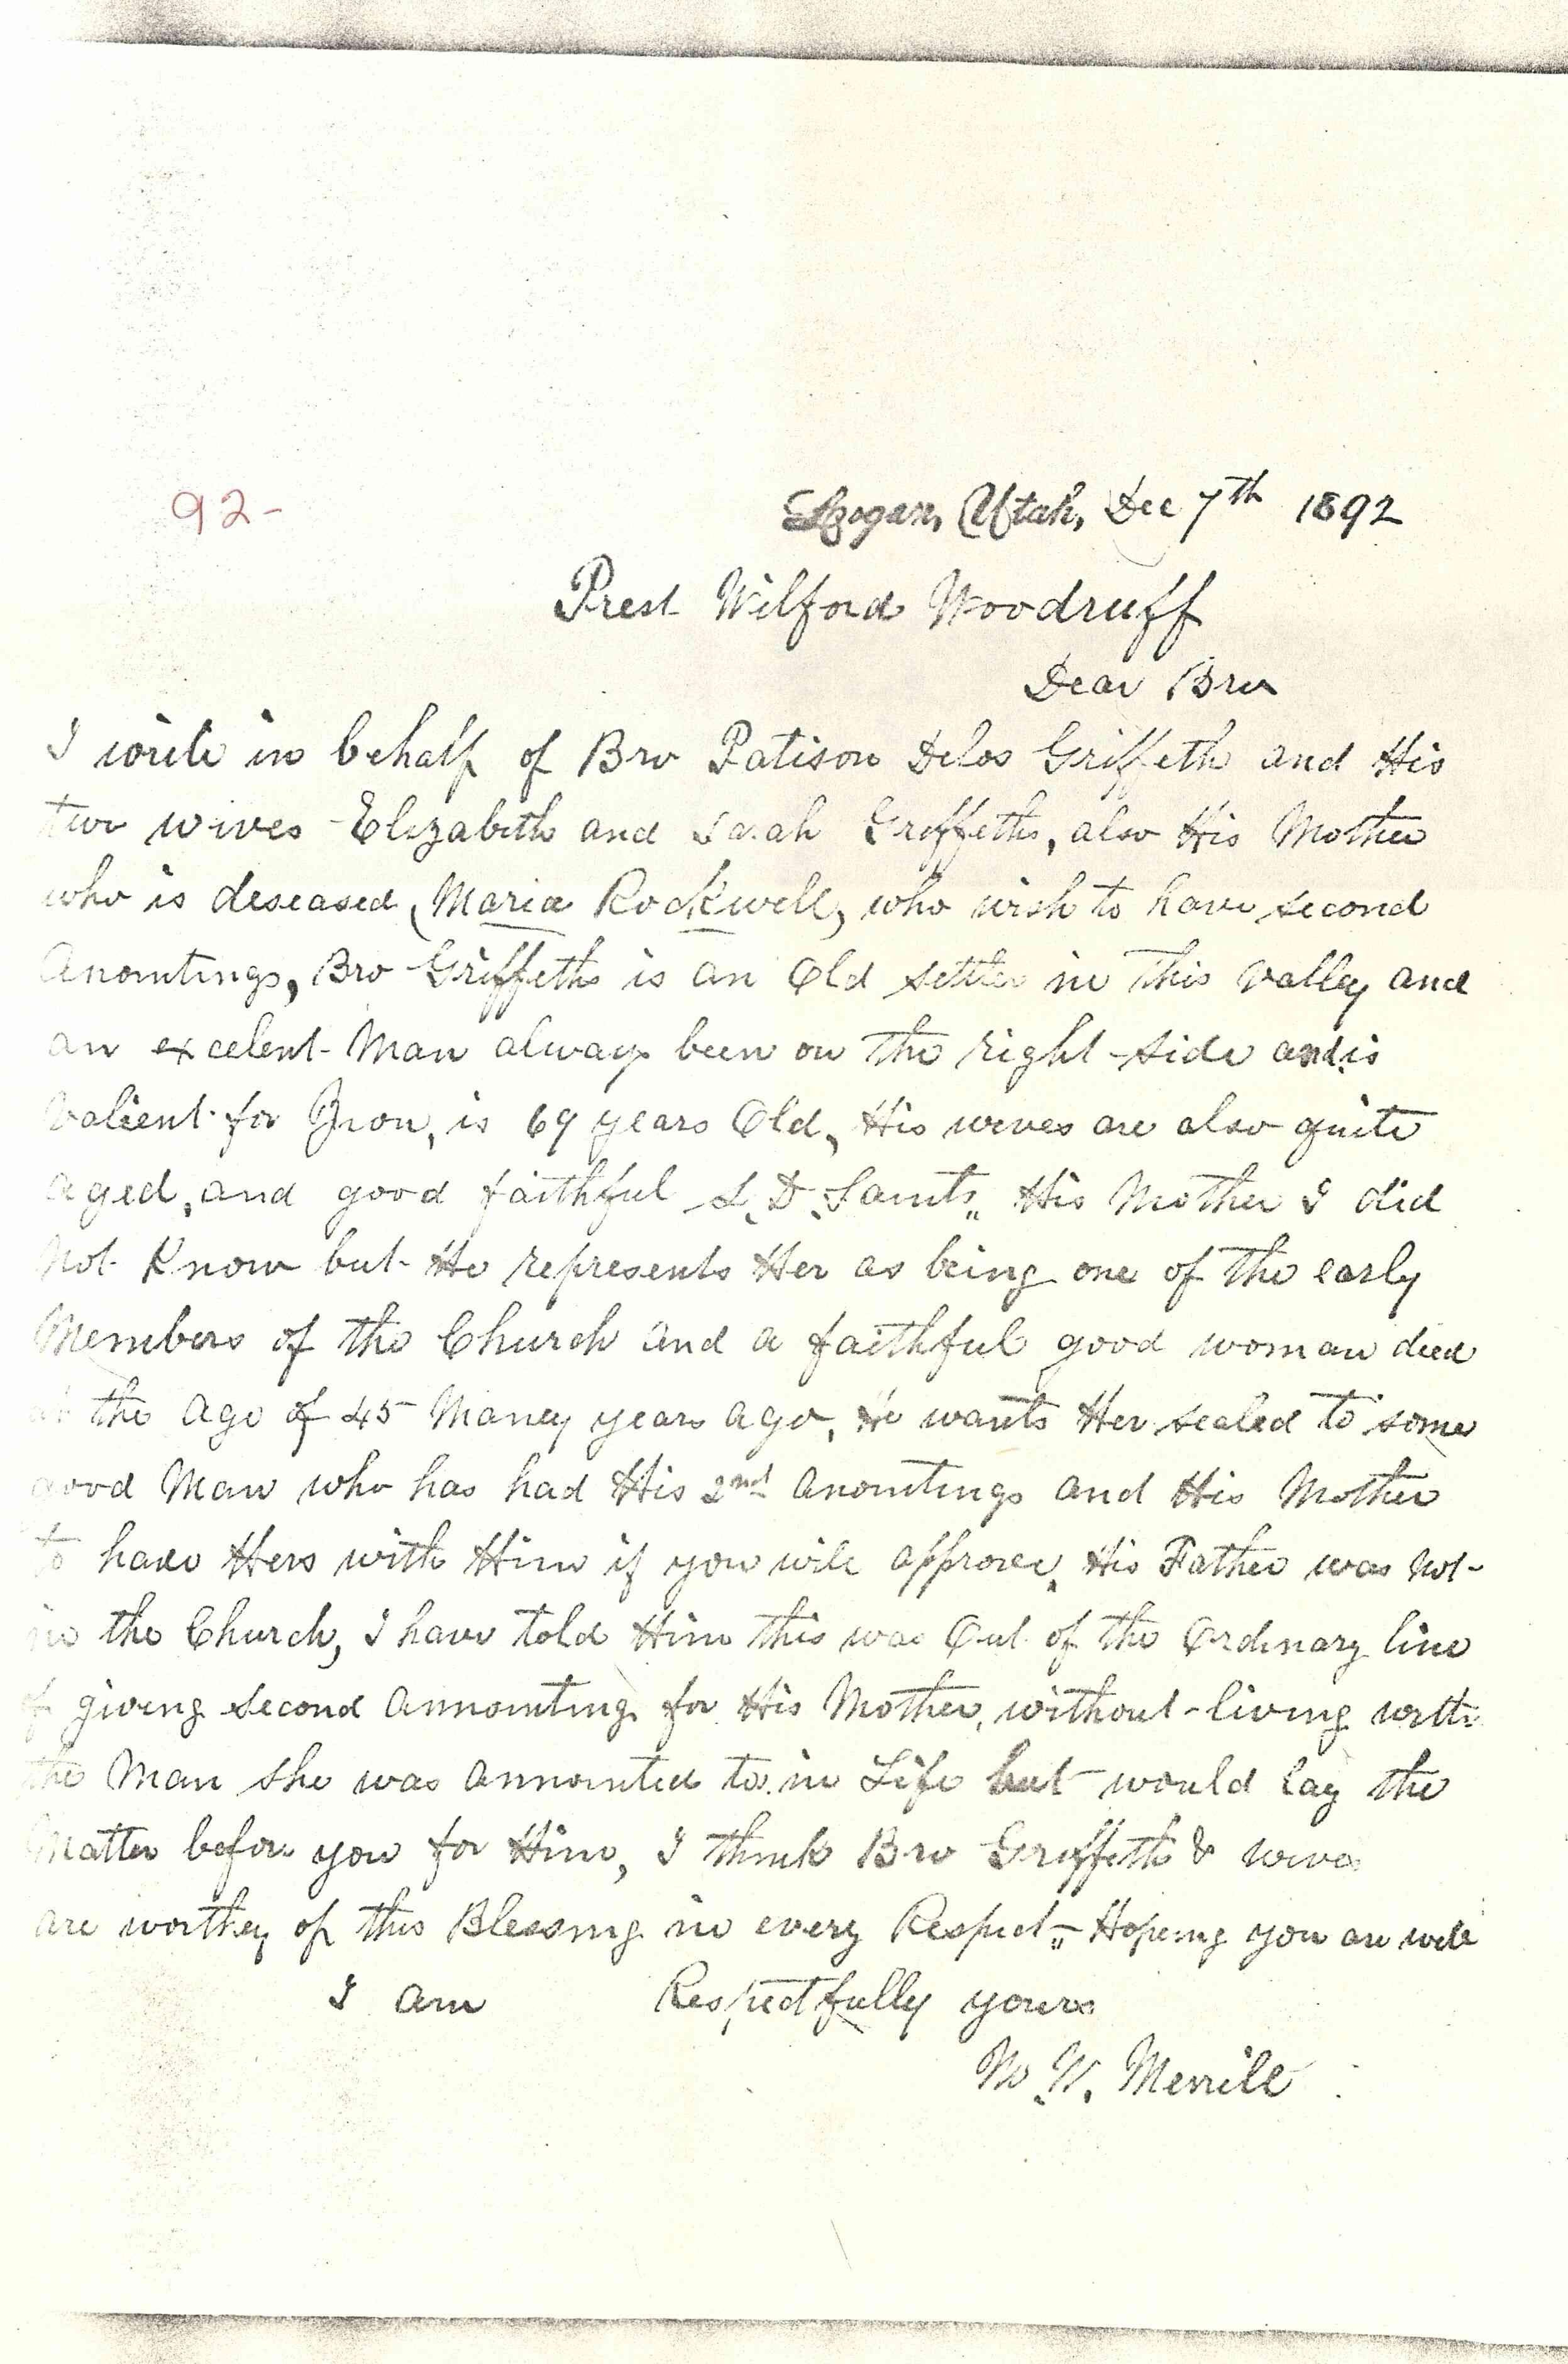 92-
Logan, Utah, Dec 7th 1892
Prest Wilford Woodruff
Dear Bro
I write in behalf of Bro Patison Delos Griffeth and His
two wives Elizabeth and Sarah Griffeths, also His Mother
who is deseased, Maria Rockwell, who wish to have second
Anointings, Bro Griffeths is an Old settler in this valley and
an excelent Man always been on the right side and is
valient for Zion, is 69 years Old, His wives are also quite
aged, and good faithful L. D. Saints, His Mother I did
Not Know but He represents Her as being one of the early
Members of the Church and a faithful good woman died
at the age of 45 Maney years ago, He wants Her sealed to some
good Man who has had His 2nd anointings and His Mother
to have Hers with Him if you will approve, His Father was Not
in the Church, I have told Him this was Out of the Ordinary line
of giving second annointing for His Mother, without living with
the Man she was annointed to in Life but would lay the
Matter before you for Him, I think Bro Griffeths & wives
are worthey of this Blessing in every Respect, Hopeing you are well
I am Respectfully yours
M. W. Merrill